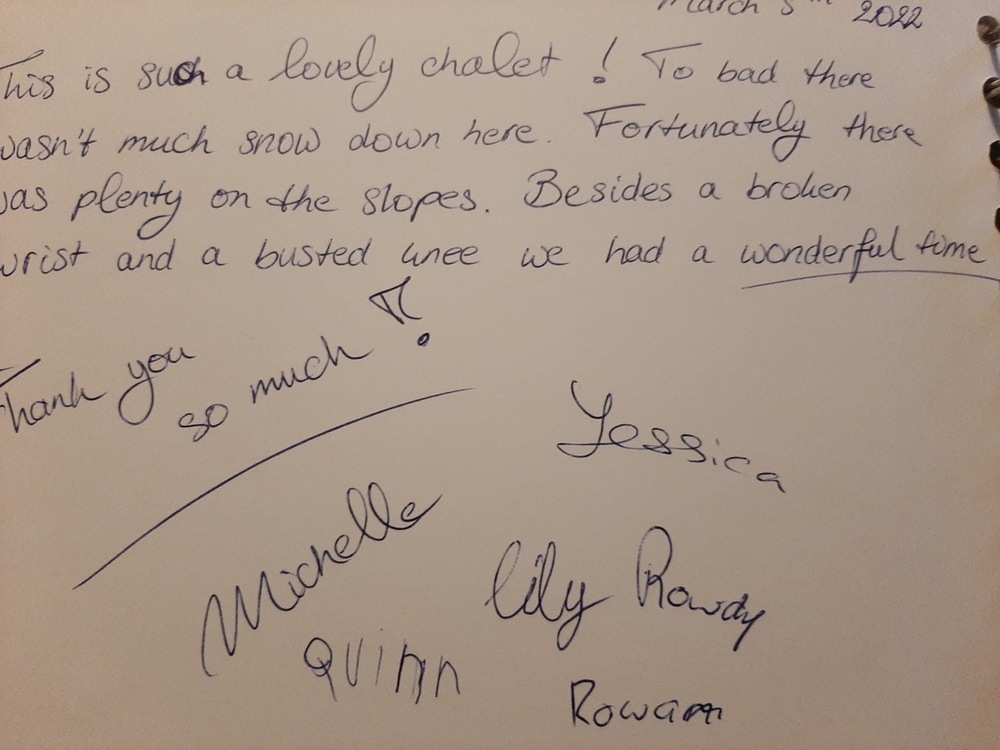 March 5th 2022
This is such a lovely chalet! To bad there
wasn't much snow down here. Fortunately there
was plenty on the slopes. Besides a broken
wrist and a busted knee we had a wonderful time
Thank you
so much!
Yessica
Michelle
Lily Rowdy
Quinn
Rowan